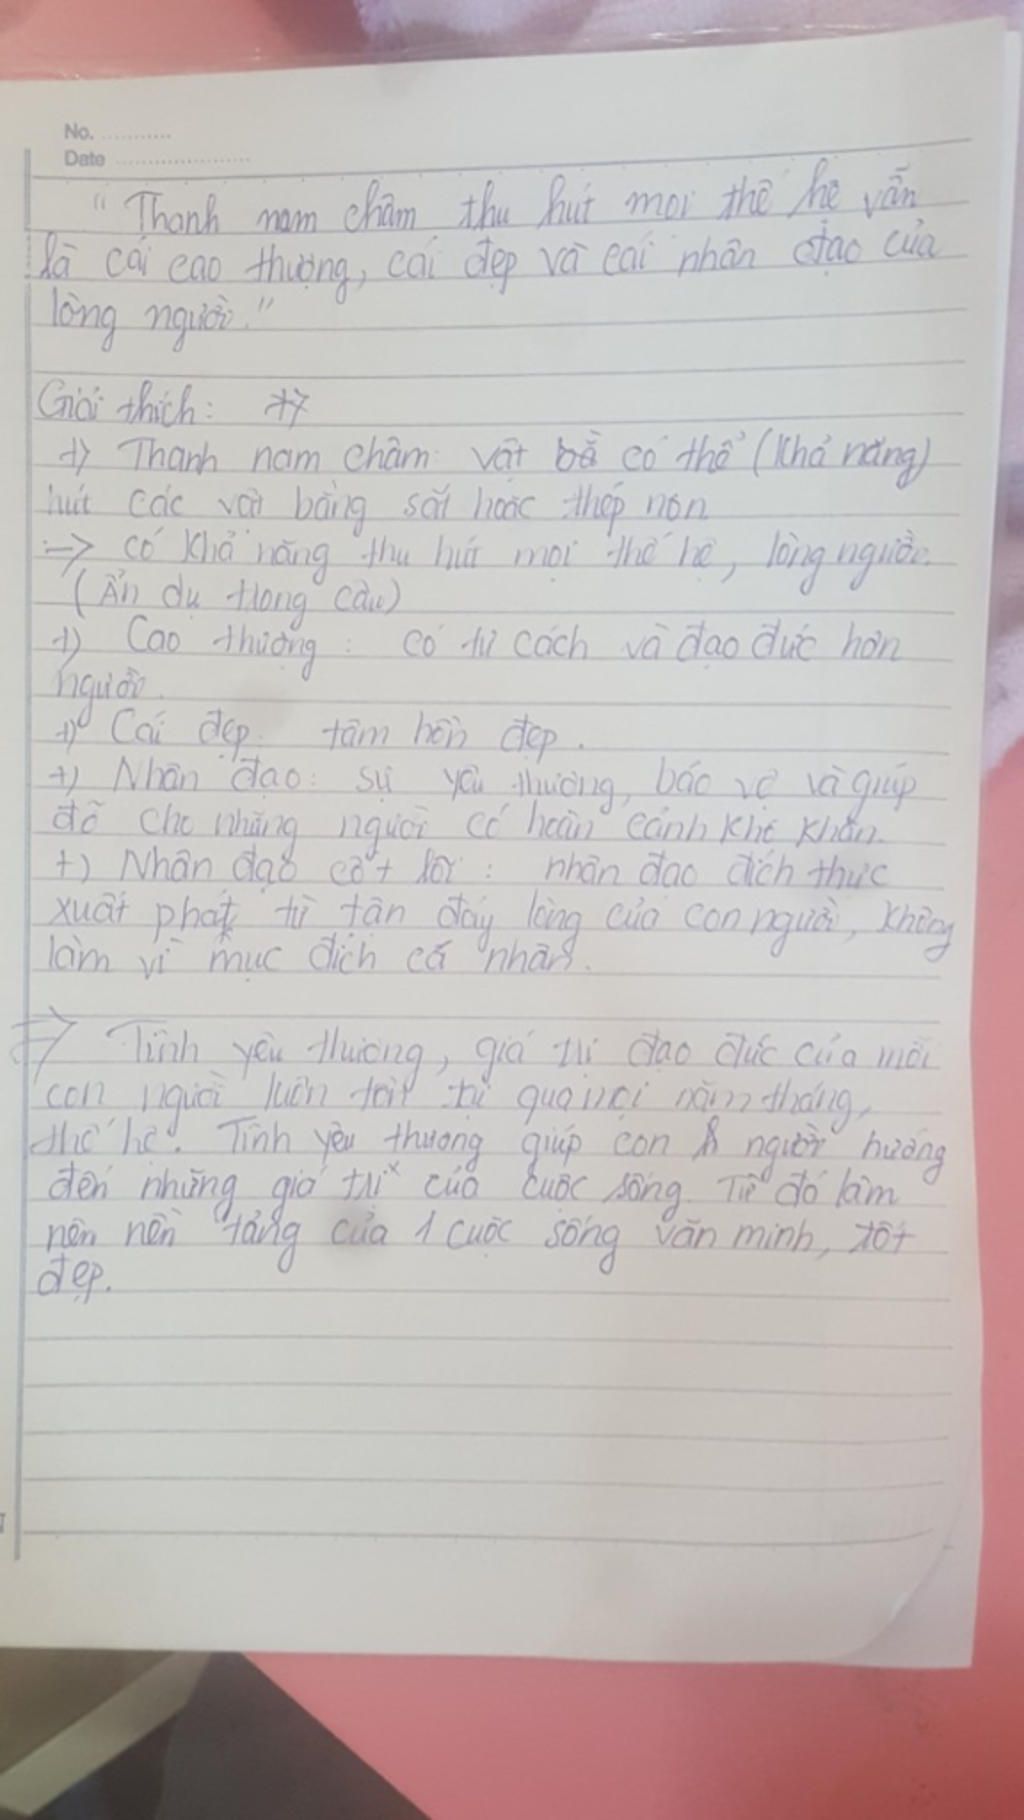 No. ...........
Date .....................
"Thanh nam châm thu hút mọi thế hệ vẫn
là cái cao thượng, cái đẹp và cái nhân đạo của
lòng người."
Giải thích:
+) Thanh nam châm: vật có thể (khả năng)
hút các vật bằng sắt hoặc thép non
=> có khả năng thu hút mọi thế hệ, lòng người.
(Ẩn dụ trong câu)
+) Cao thượng: có tư cách và đạo đức hơn
người.
+) Cái đẹp: tâm hồn đẹp.
+) Nhân đạo: sự yêu thương, bảo vệ và giúp
đỡ cho những người có hoàn cảnh khó khăn.
+) Nhân đạo cốt lõi: nhân đạo đích thực
xuất phát từ tận đáy lòng của con người, không
làm vì mục đích cá nhân.
=> Tình yêu thương, giá trị đạo đức của mỗi
con người luôn tồn tại qua mọi năm tháng,
thế hệ. Tình yêu thương giúp con người hướng
đến những giá trị của cuộc sống. Từ đó làm
nên nền tảng của 1 cuộc sống văn minh, tốt
đẹp.